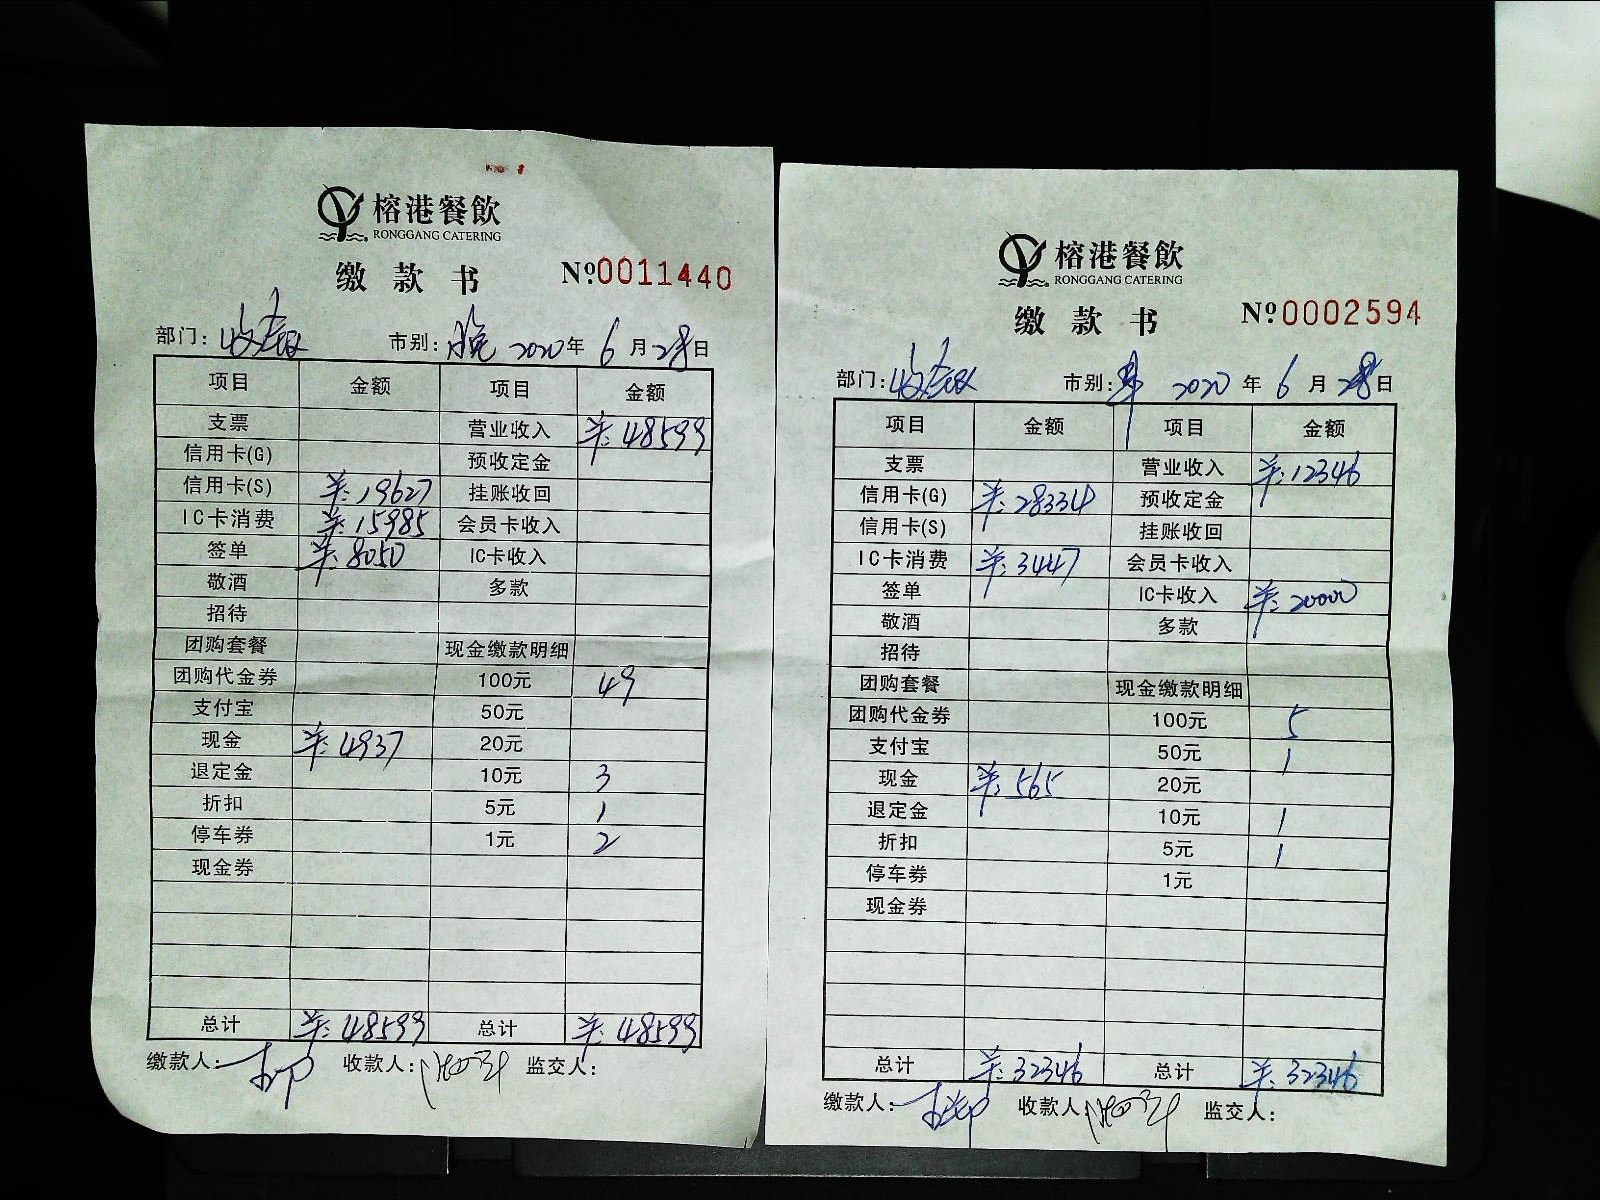 榕港餐飲
RONGGANG CATERING
缴款书 №0011440
部门: 收银 市别: 晚 2020年 6月28日
项目 金额 项目 金额
支票 营业收入 ¥:48599
信用卡(G) 预收定金
信用卡(S) ¥:19627 挂账收回
IC卡消费 ¥:15985 会员卡收入
签单 ¥:8050 IC卡收入
敬酒 多款
招待
团购套餐 现金缴款明细
团购代金券 100元 49
支付宝 50元
现金 ¥:4937 20元
退定金 10元 3
折扣 5元 1
停车券 1元 2
现金券
总计 ¥:48599 总计 ¥:48599
缴款人: 收款人: 监交人:
榕港餐飲
RONGGANG CATERING
缴款书 №0002594
部门: 收银 市别: 2020年 6月28日
项目 金额 项目 金额
支票 营业收入 ¥:12346
信用卡(G) ¥:28334 预收定金
信用卡(S) 挂账收回
IC卡消费 ¥:3447 会员卡收入
签单 IC卡收入 ¥:20000
敬酒 多款
招待
团购套餐 现金缴款明细
团购代金券 100元 5
支付宝 50元 1
现金 ¥:565 20元
退定金 10元 1
折扣 5元 1
停车券 1元
现金券
总计 ¥:32346 总计 ¥:32346
缴款人: 收款人: 监交人: